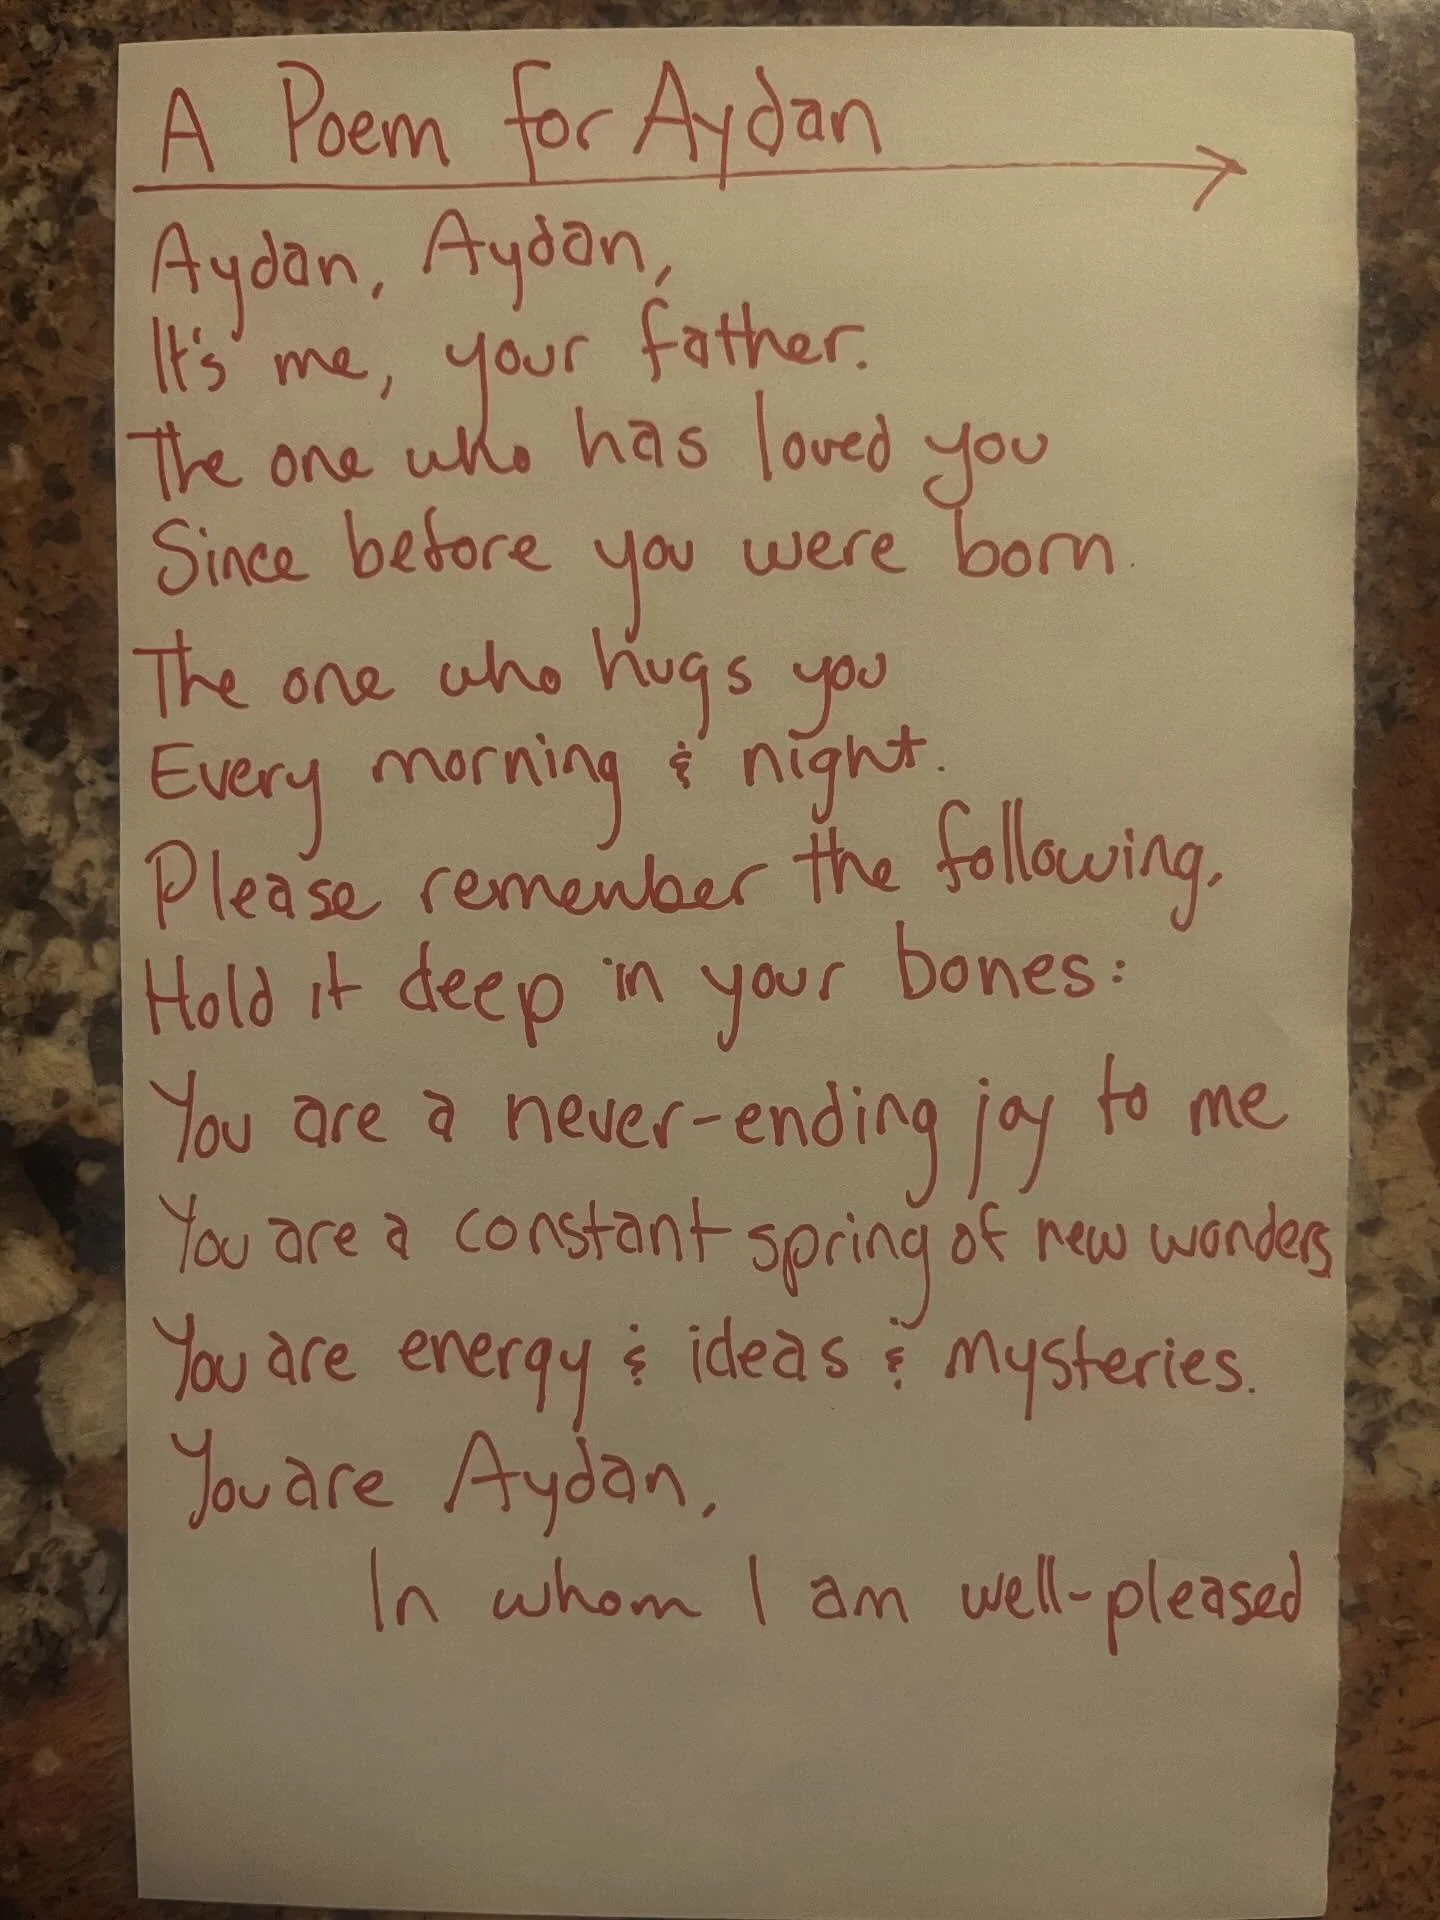 A Poem for Aydan
Aydan, Aydan,
It's me, your father.
The one who has loved you
Since before you were born.
The one who hugs you
Every morning & night.
Please remember the following,
Hold it deep in your bones:
You are a never-ending joy to me
You are a constant spring of new wonders
You are energy & ideas & mysteries.
You are Aydan,
In whom I am well-pleased